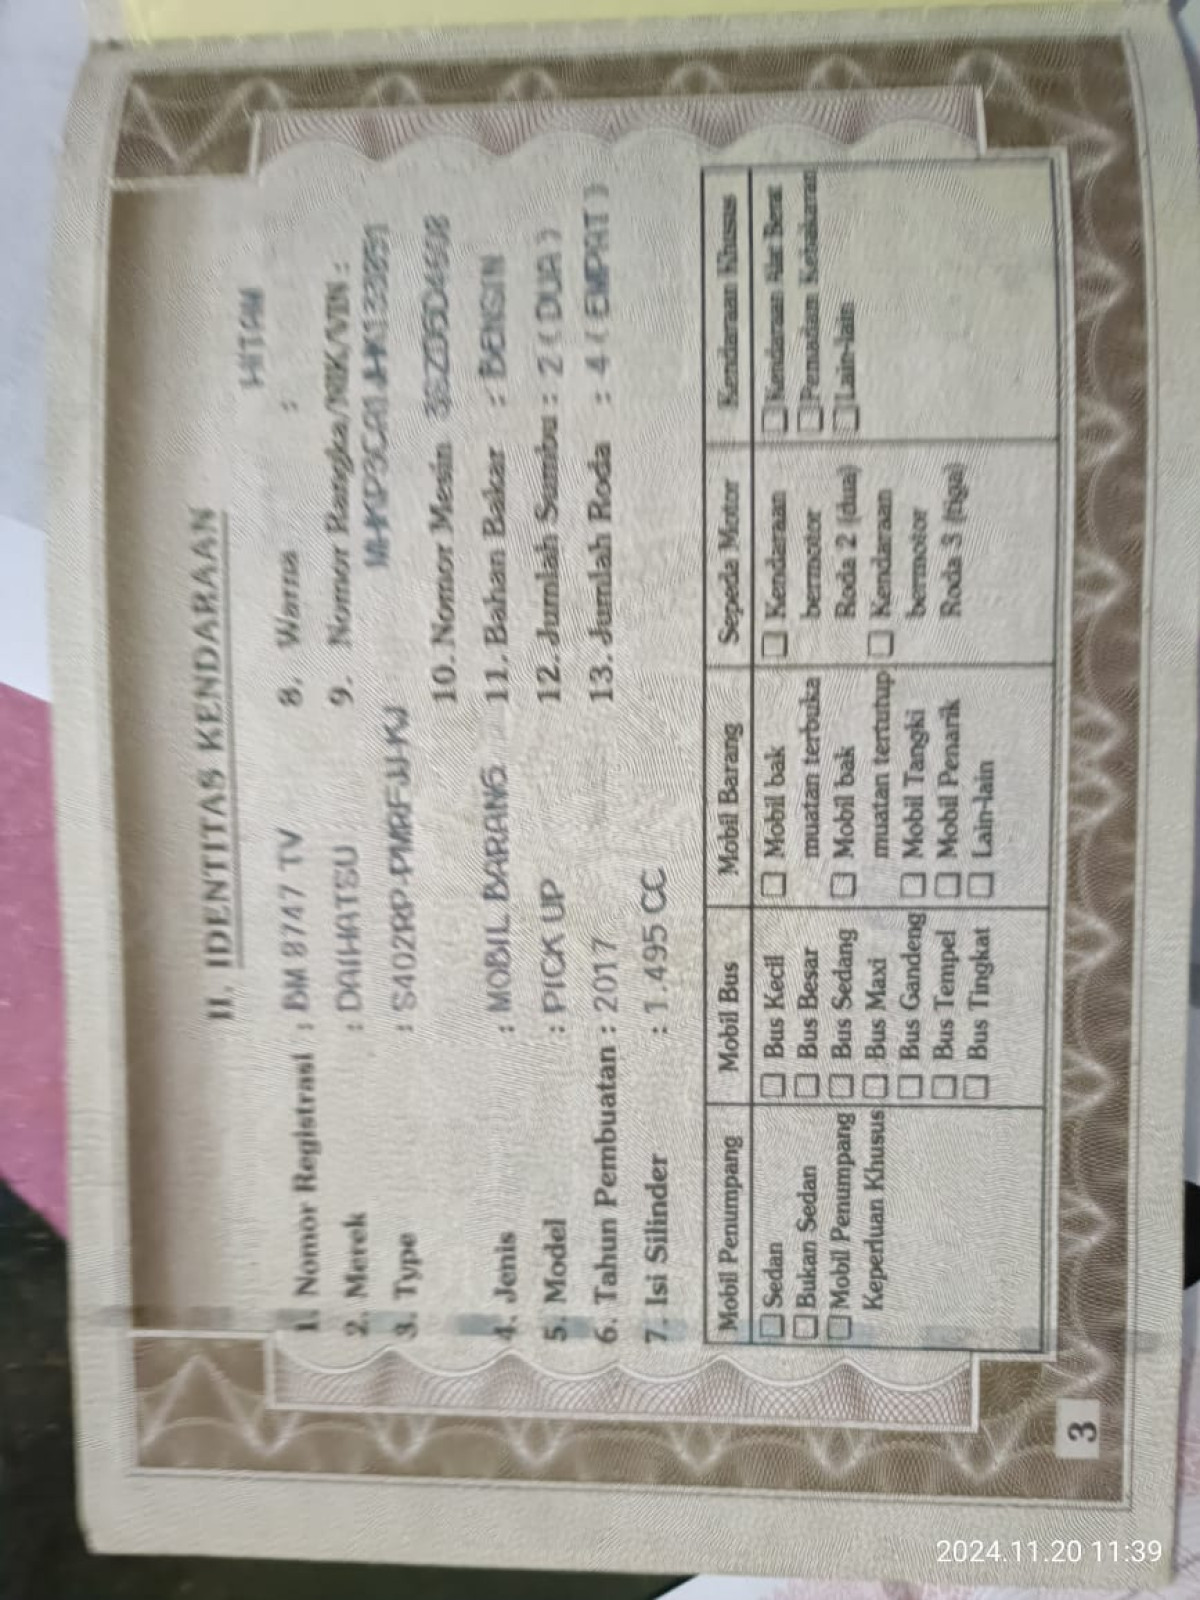 II. IDENTITAS KENDARAAN
1. Nomor Registrasi : BM 8747 TV
2. Merek : DAIHATSU
3. Type : S402RP-PMRFJJ-KJ
4. Jenis : MOBIL BARANG
5. Model : PICK UP
6. Tahun Pembuatan : 2017
7. Isi Silinder : 1.495 CC
8. Warna : HITAM
9. Nomor Rangka/NIK/VIN :
10. Nomor Mesin
11. Bahan Bakar : BENSIN
12. Jumlah Sumbu : 2 ( DUA )
13. Jumlah Roda : 4 ( EMPAT )
Mobil Penumpang
☐ Sedan
☐ Bukan Sedan
☐ Mobil Penumpang
Keperluan Khusus
Mobil Bus
☐ Bus Kecil
☐ Bus Besar
☐ Bus Sedang
☐ Bus Maxi
☐ Bus Gandeng
☐ Bus Tempel
☐ Bus Tingkat
Mobil Barang
☐ Mobil bak
muatan terbuka
☐ Mobil bak
muatan tertutup
☐ Mobil Tangki
☐ Mobil Penarik
☐ Lain-lain
Sepeda Motor
☐ Kendaraan
bermotor
Roda 2 (dua)
☐ Kendaraan
bermotor
Roda 3 (tiga)
Kendaraan Khusus
☐ Kendaraan Alat Berat
☐ Pemadam Kebakaran
☐ Lain-lain
3
2024.11.20 11:39